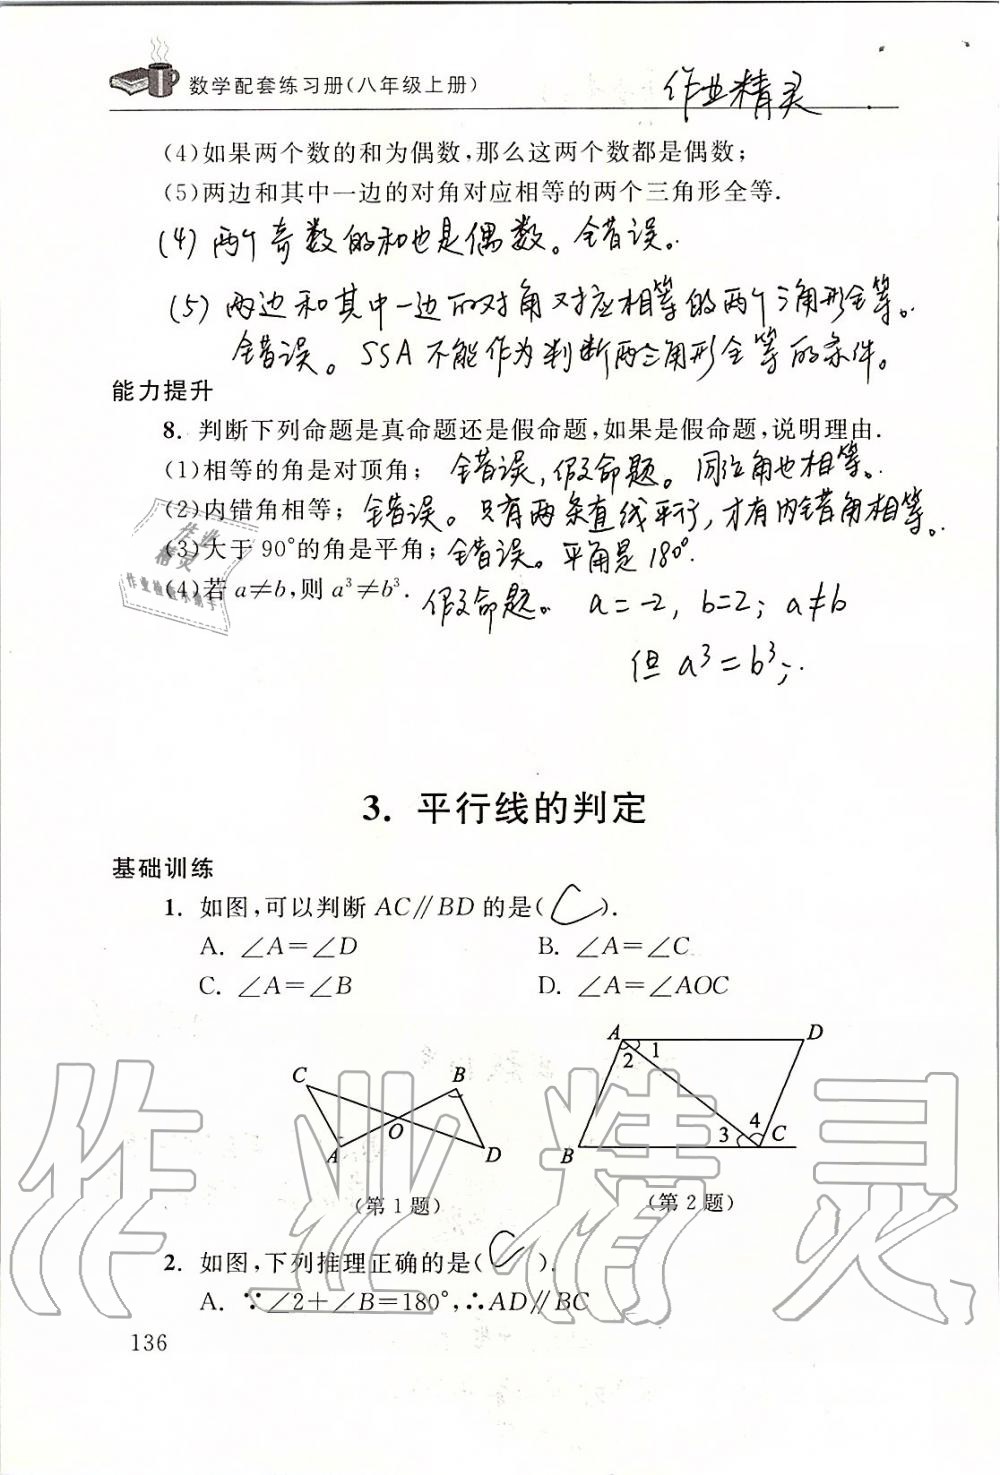 数学配套练习册(八年级上册)
作业精灵
(4)如果两个数的和为偶数,那么这两个数都是偶数;
(5)两边和其中一边的对角对应相等的两个三角形全等.
(4) 两个奇数的和也是偶数。错误。
(5) 两边和其中一边的对角对应相等的两个三角形全等。
错误。SSA不能作为判断两三角形全等的条件。
能力提升
8. 判断下列命题是真命题还是假命题,如果是假命题,说明理由.
(1)相等的角是对顶角; 错误,假命题。同位角也相等。
(2)内错角相等; 错误。只有两条直线平行,才有内错角相等。
(3)大于90°的角是平角; 错误。平角是180°.
(4)若a≠b,则a³≠b³. 假命题。 a=-2, b=2; a≠b
但 a³=b³;
作业
精灵
作业检查小助手
3. 平行线的判定
基础训练
1. 如图,可以判断AC∥BD的是( C ).
A. ∠A=∠D B. ∠A=∠C
C. ∠A=∠B D. ∠A=∠AOC
C B O A D
(第1题)
A D 2 1 3 4 B C
(第2题)
2. 如图,下列推理正确的是( C ).
A. ∵∠2+∠B=180°,∴AD∥BC
136
作业精灵